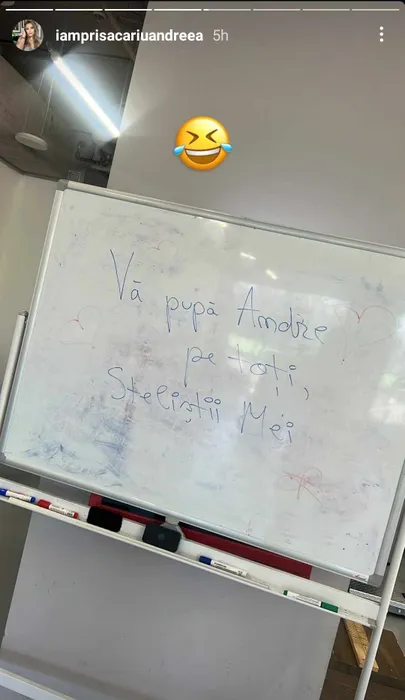 iamprisacariuandreea 5h
Vă pupă Amdize
pe toți,
Steliștii Mei